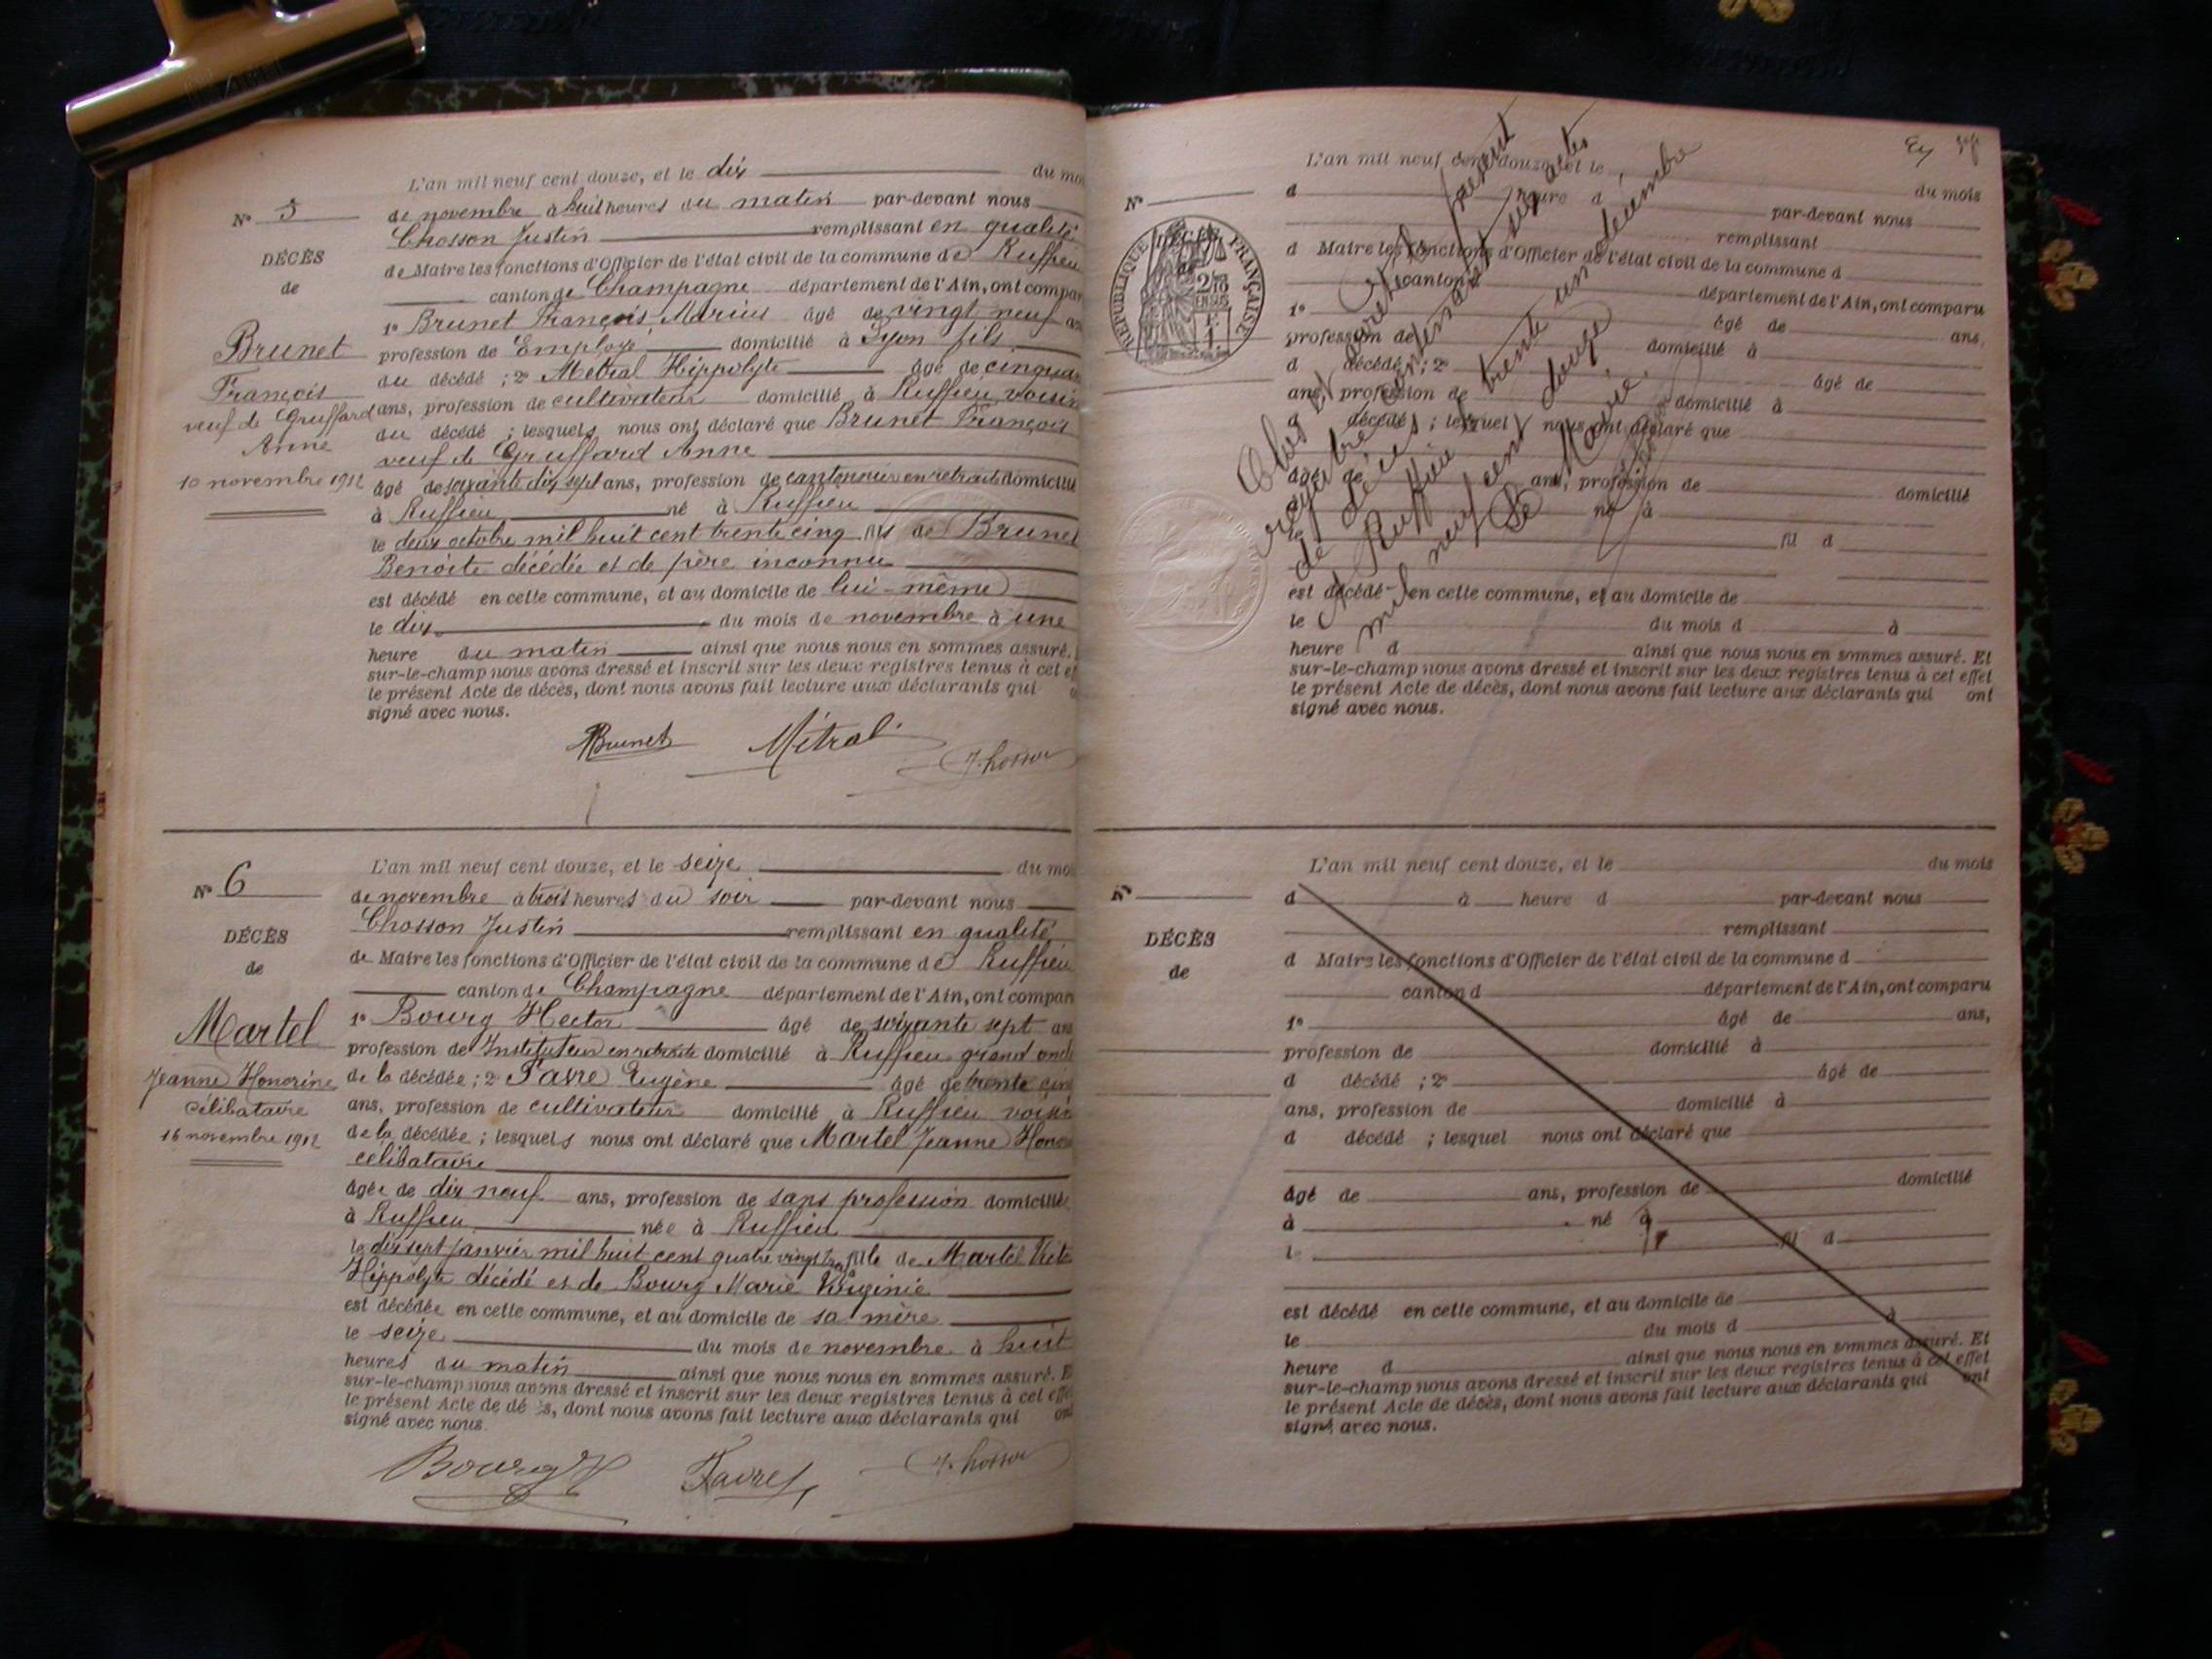 L'an mil neuf cent douze, et le dix du moi
N° 5
de novembre à huit heures du matin par-devant nous
Chosson Justin remplissant en qualité
DÉCÈS
de Maire les fonctions d'Officier de l'état civil de la commune de Ruffieu
de
canton de Champagne département de l'Ain, ont compar
1° Brunet François Marius âgé de vingt neuf an
Brunet
profession de Employé domicilié à Lyon fils
du décédé ; 2° Métral Hippolyte âgé de cinquan
François
ans, profession de cultivateur domicilié à Ruffieu, voisin
veuf de Gruffard
du décédé ; lesquels nous ont déclaré que Brunet François
Anne
veuf de Gruffard Anne
10 novembre 1912
âgé de soixante dix sept ans, profession de cantonnier en retraite domicilié
à Ruffieu né à Ruffieu
le deux octobre mil huit cent trente cinq fils de Brunet
Benoite décédée et de père inconnu
est décédé en cette commune, et au domicile de lui-même
le dix du mois de novembre à une
heure du matin ainsi que nous nous en sommes assuré.
sur-le-champ nous avons dressé et inscrit sur les deux registres tenus à cet ef
le présent Acte de décès, dont nous avons fait lecture aux déclarants qui
signé avec nous.
Brunet Métral J. Chosson
L'an mil neuf cent douze, et le seize du moi
N° 6
de novembre à trois heures du soir par-devant nous
Chosson Justin remplissant en qualité
DÉCÈS
de Maire les fonctions d'Officier de l'état civil de la commune de Ruffieu
de
canton de Champagne département de l'Ain, ont compar
Martel
1° Bourg Hector âgé de soixante sept ans
profession de Instituteur en retraite domicilié à Ruffieu grand oncle
Jeanne Honorine
de la décédée ; 2° Favre Eugène âgé de trente cinq
célibataire
ans, profession de cultivateur domicilié à Ruffieu voisin
16 novembre 1912
de la décédée ; lesquels nous ont déclaré que Martel Jeanne Honor
célibataire
âgée de dix neuf ans, profession de sans profession domiciliée
à Ruffieu née à Ruffieu
le dix sept janvier mil huit cent quatre vingt fille de Martel
Hippolyte décédé et de Bourg Marie Virginie
est décédée en cette commune, et au domicile de sa mère
le seize du mois de novembre à huit
heures du matin ainsi que nous nous en sommes assuré. E
sur-le-champ nous avons dressé et inscrit sur les deux registres tenus à cet effe
le présent Acte de décès, dont nous avons fait lecture aux déclarants qui on
signé avec nous.
Bourg H Favre J. Chosson
L'an mil neuf cent douze, et le du mois
N°
d heure d par-devant nous
remplissant
d Maire les fonctions d'Officier de l'état civil de la commune d
canton d département de l'Ain, ont comparu
RÉPUBLIQUE FRANÇAISE
1° âgé de ans,
profession de domicilié à
d décédé ; 2° âgé de
ans, profession de domicilié à
d décédé ; lesquel nous ont déclaré que
âgé de ans, profession de domicilié
à né à
le fil d
est décédé en cette commune, et au domicile de
le du mois d à
heure d ainsi que nous nous en sommes assuré. Et
sur-le-champ nous avons dressé et inscrit sur les deux registres tenus à cet effet
le présent Acte de décès, dont nous avons fait lecture aux déclarants qui ont
signé avec nous.
Clos et arrêté le présent
registre contenant six actes
de décès
A Ruffieu trente un décembre
mil neuf cent douze
Le Maire
L'an mil neuf cent douze, et le du mois
N°
d à heure d par-devant nous
remplissant
DÉCÈS
d Maire les fonctions d'Officier de l'état civil de la commune d
de
canton d département de l'Ain, ont comparu
1° âgé de ans,
profession de domicilié à
d décédé ; 2° âgé de
ans, profession de domicilié à
d décédé ; lesquel nous ont déclaré que
âgé de ans, profession de domicilié
à né à
l fil d
est décédé en cette commune, et au domicile de
le du mois d à
heure d ainsi que nous nous en sommes assuré. Et
sur-le-champ nous avons dressé et inscrit sur les deux registres tenus à cet effet
le présent Acte de décès, dont nous avons fait lecture aux déclarants qui ont
signé avec nous.